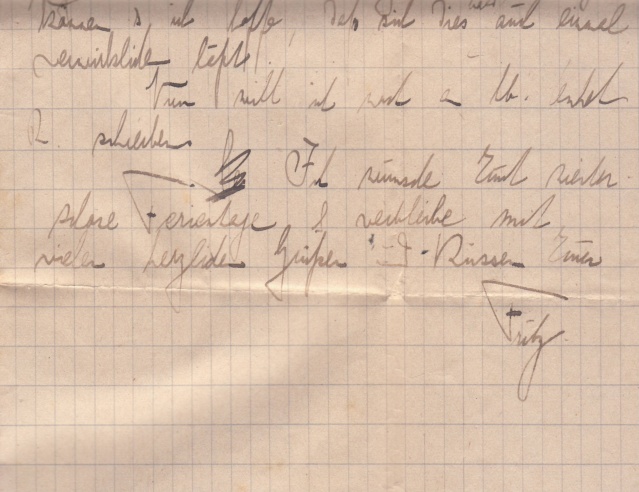 können & ich hoffe, daß sich dies bald auch einmal
verwirkliche läßt.
Nun will ich noch a lb. Onkel
R. schreiben.
Ich wünsche Euch
schöne Ferientage & verbleibe mit
vielen herzliche Grüßen und Küssen Euer
Fritz.